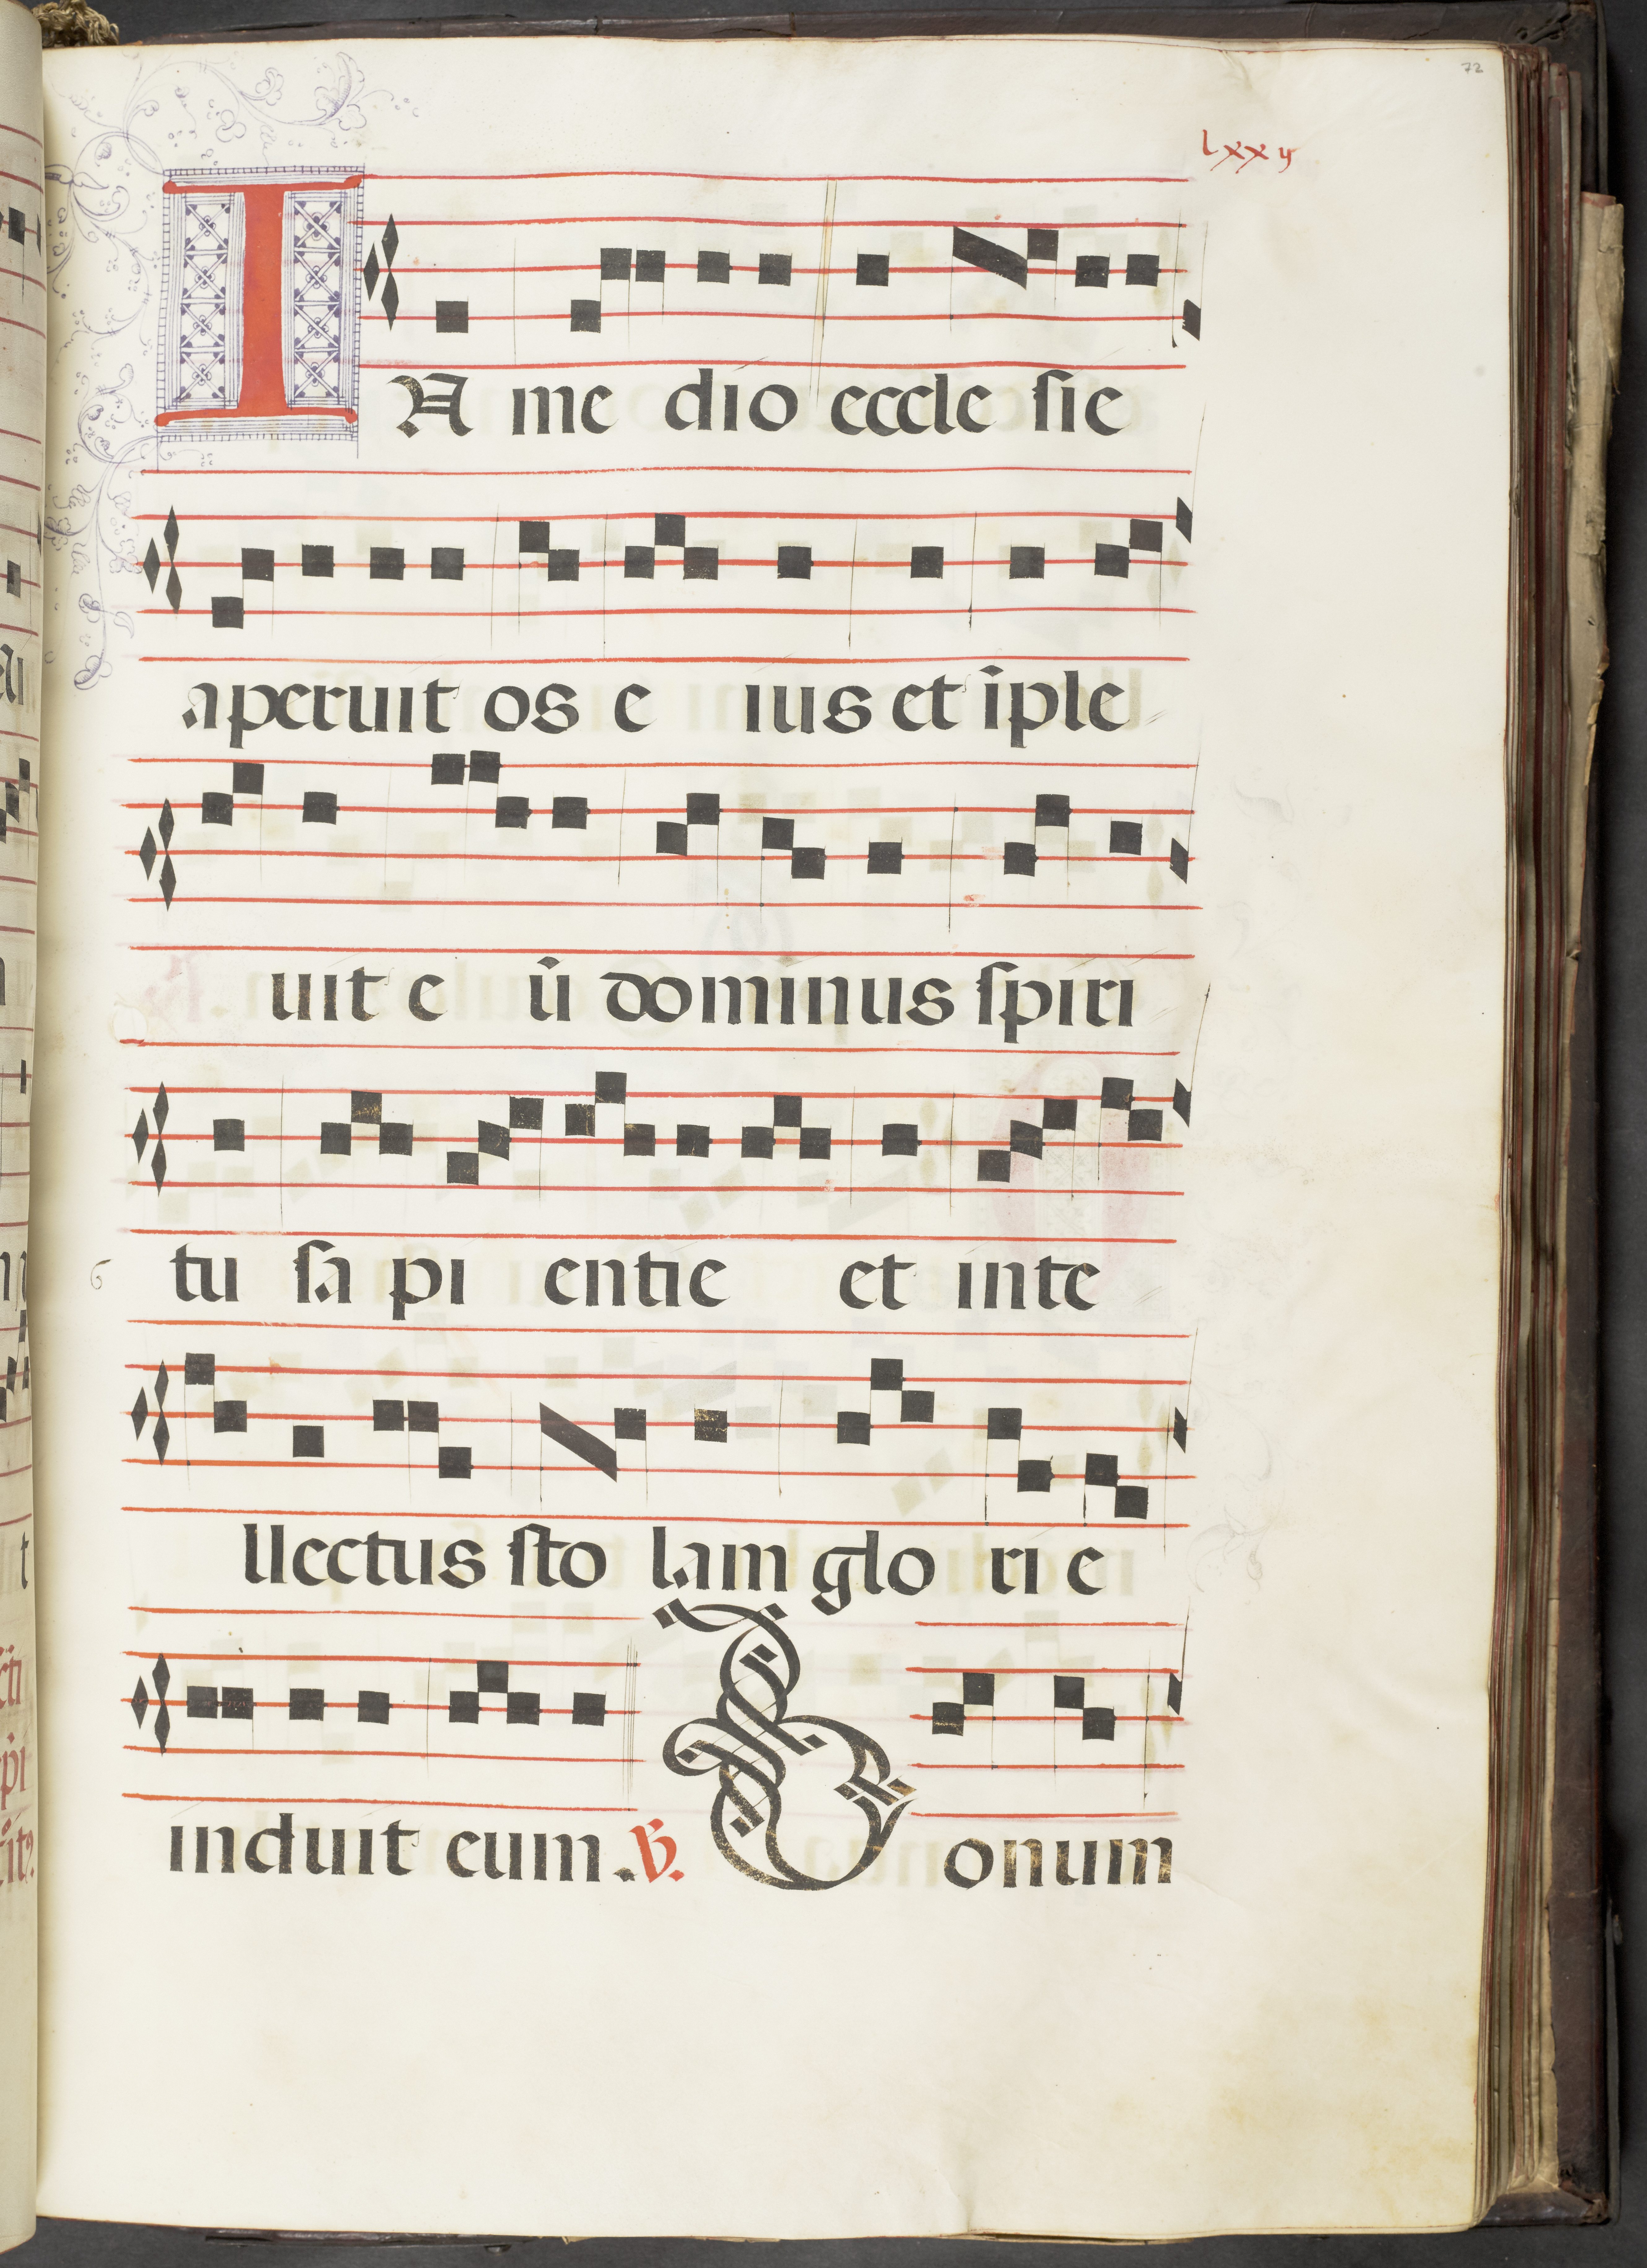 72
lxxij
IN me dio eccle sie
aperuit os e ius et īple
uit e ū dominus spiri
tu sa pi entie et inte
llectus sto lam glo ri e
induit eum. V. Bonum